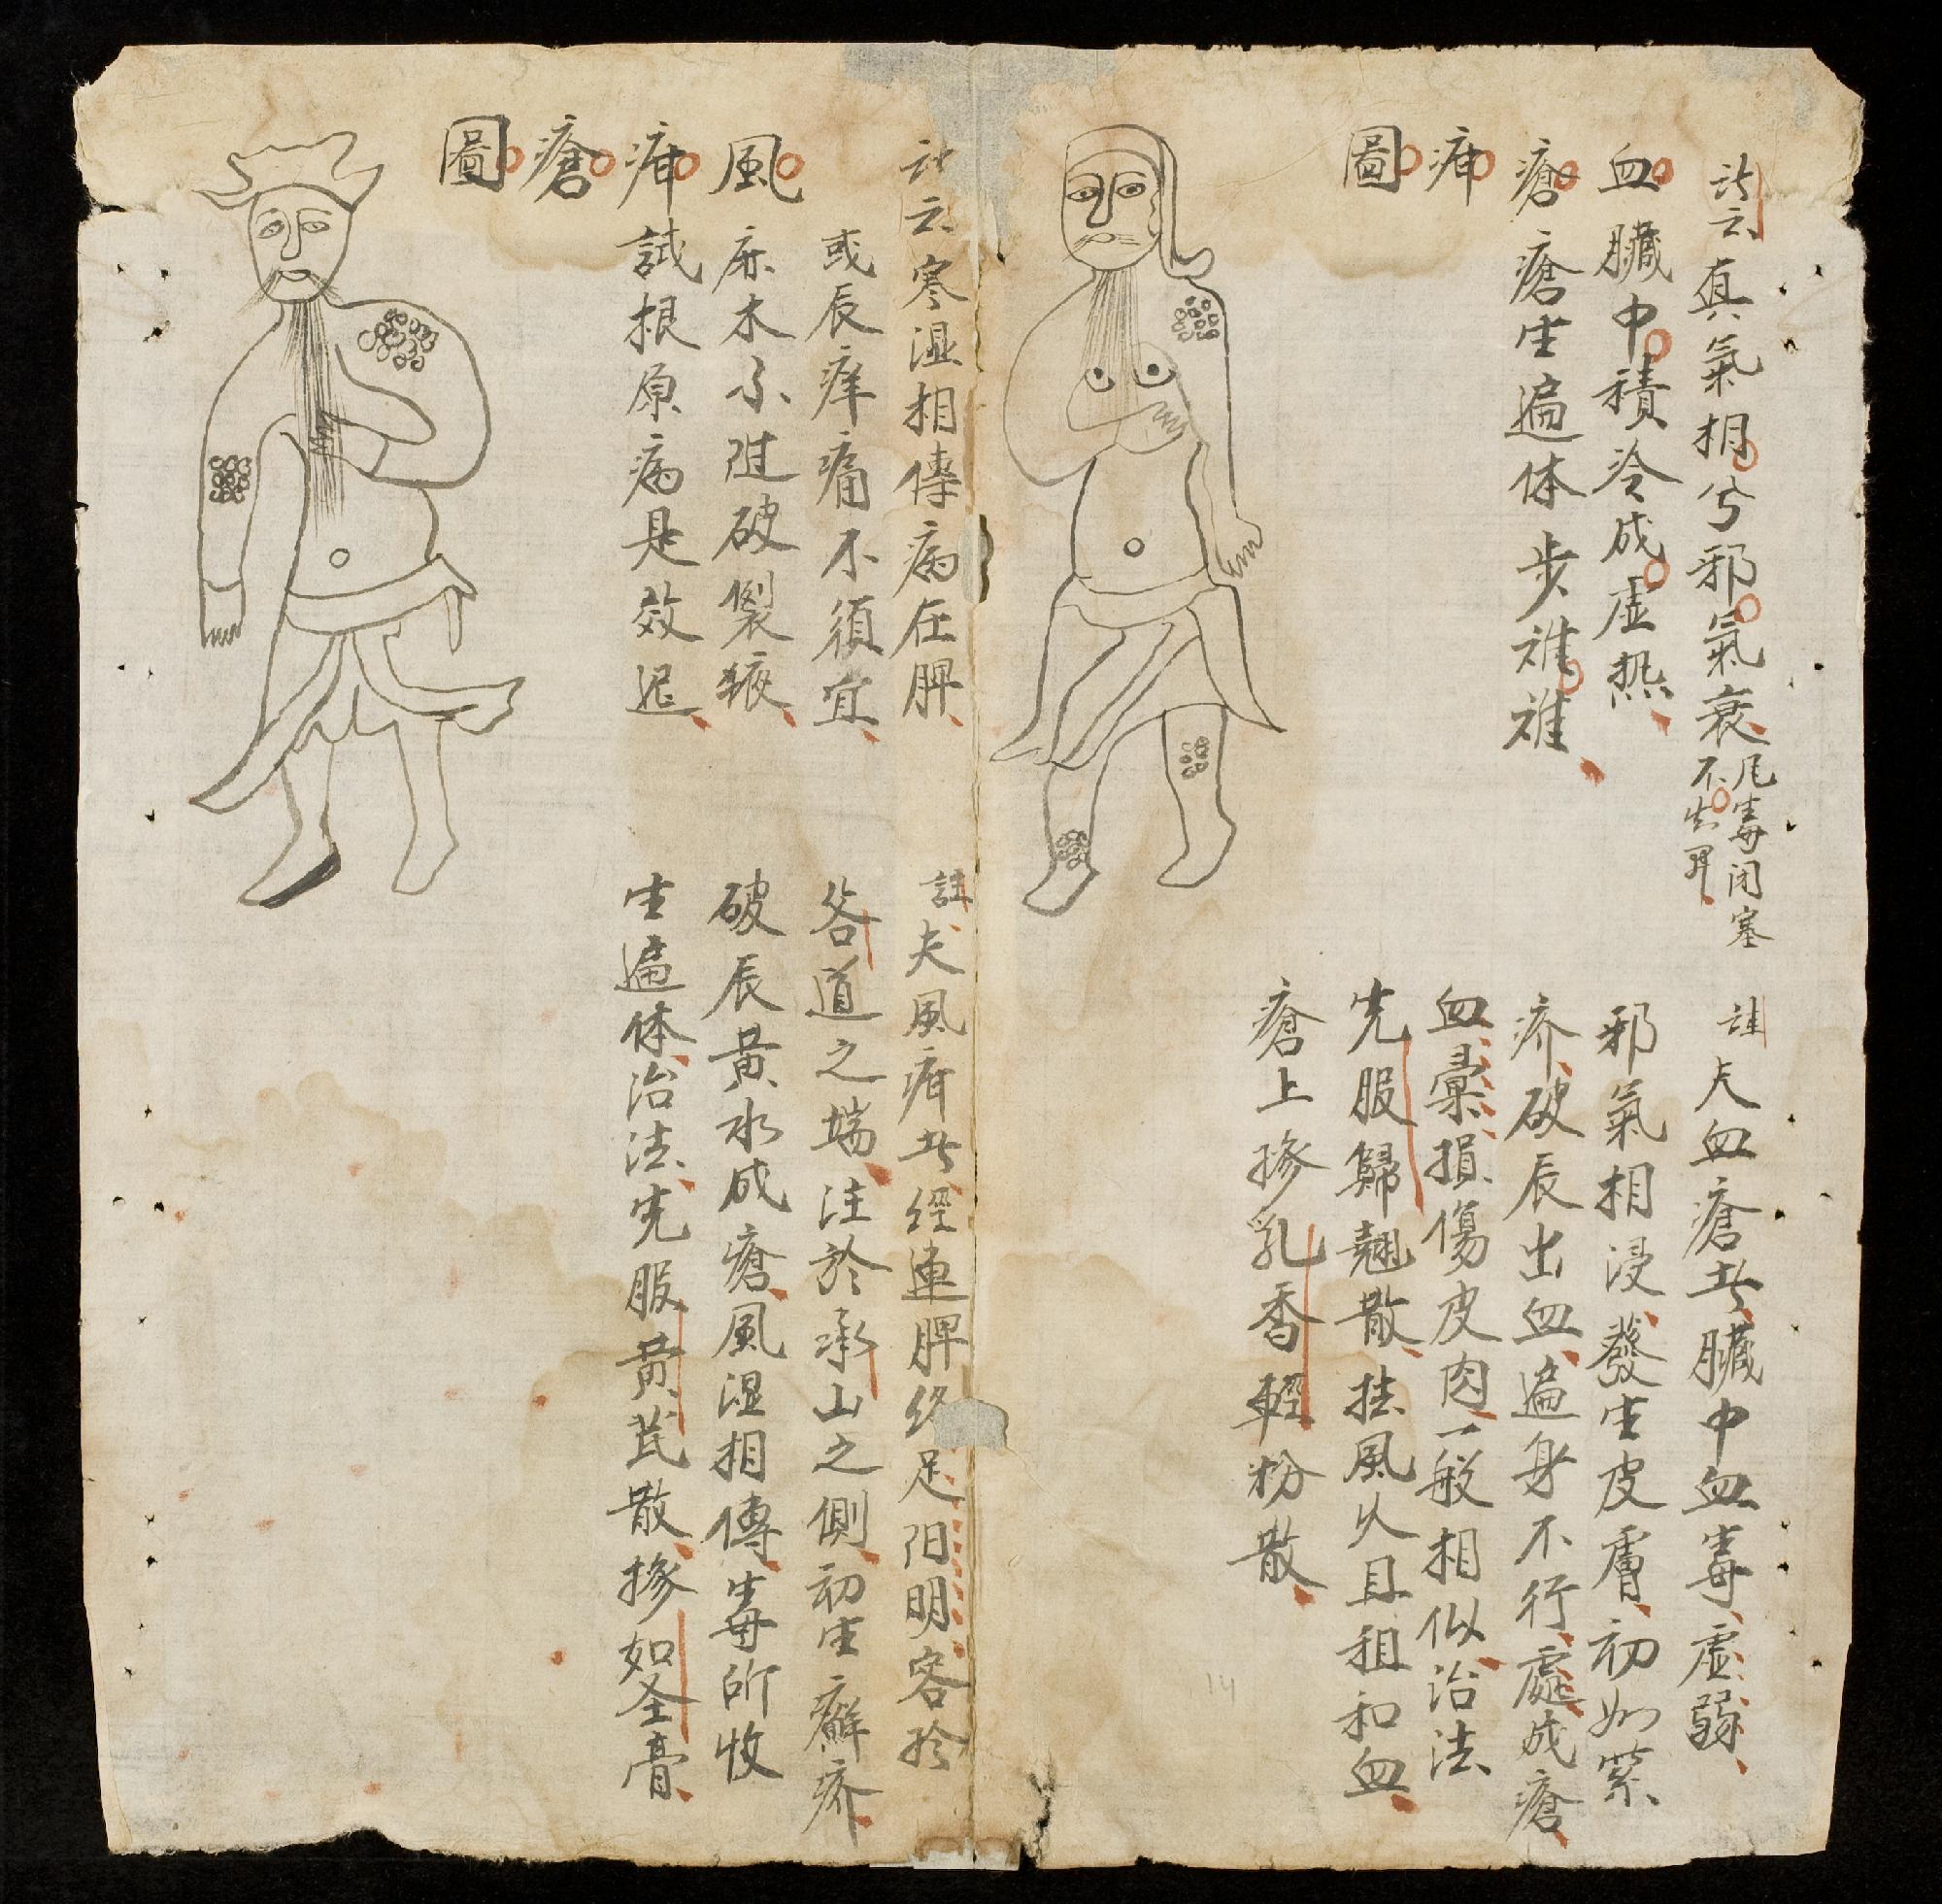 訣云真氣相兮邪氣衰
凡毒閉塞
不生
血臟中積冷成虛热
瘡瘡生遍体步难难
疳
圖
註夫血瘡者臟中血毒虛弱
邪氣相浸發生皮膚初如䋈
疥破辰出血遍身不行處成瘡
血橐損傷皮肉一般相似治法
先服歸翹散挂風火且祖和血
瘡上掺乳香輕粉散
訣云寒湿相傳病在脾
或辰痒痛不須宜
風麻木不破裂
疳試根原病是效遲
瘡
圖
註夫風疳者經連脾终足阳明容於
各道之端注於承山之側初生癬疥
破辰黄水成瘡風湿相傳毒所收
生遍体治法先服黄芪散掺如圣膏